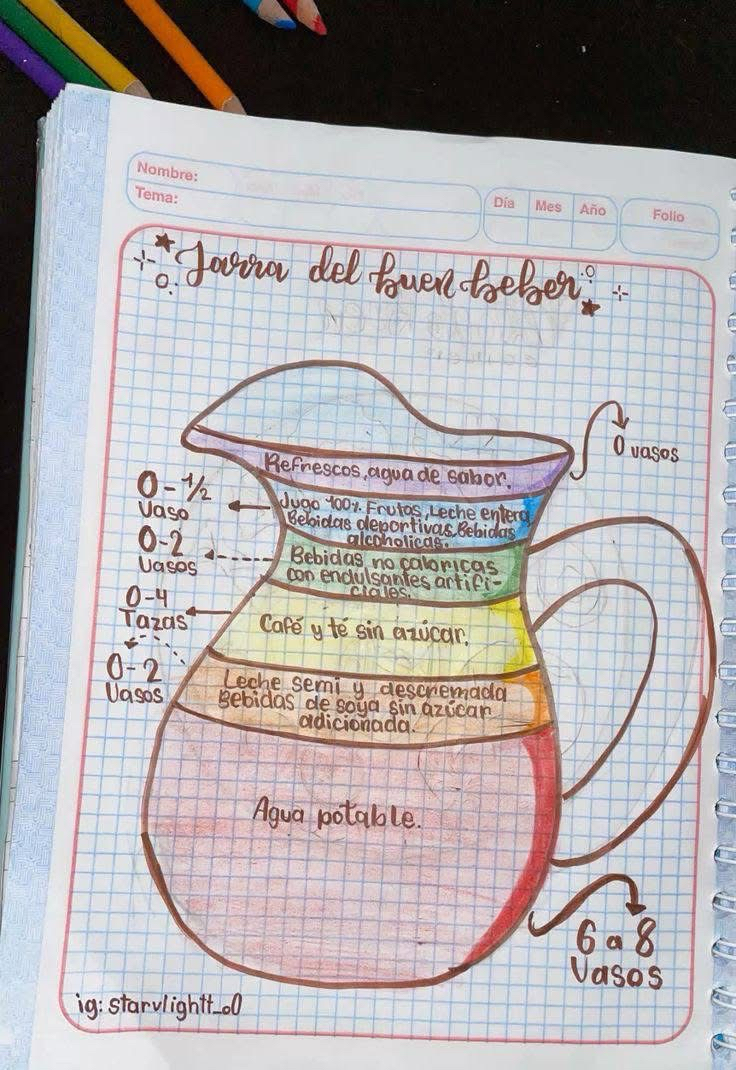 Nombre:
Tema:
Día Mes Año
Folio
Jarra del buen beber
0 vasos
Refrescos, agua de sabor.
0-1/2
Vaso
Jugo 100% Frutas, Leche entera
Bebidas deportivas, Bebidas
alcoholicas.
0-2
Vasos
Bebidas no caloricas
con endulsantes artifi-
ciales.
0-4
Tazas
Café y té sin azúcar.
0-2
Vasos
Leche semi y descremada
Bebidas de soya sin azúcar
adicionada.
Agua potable.
6 a 8
Vasos
ig: starvlightt_o0